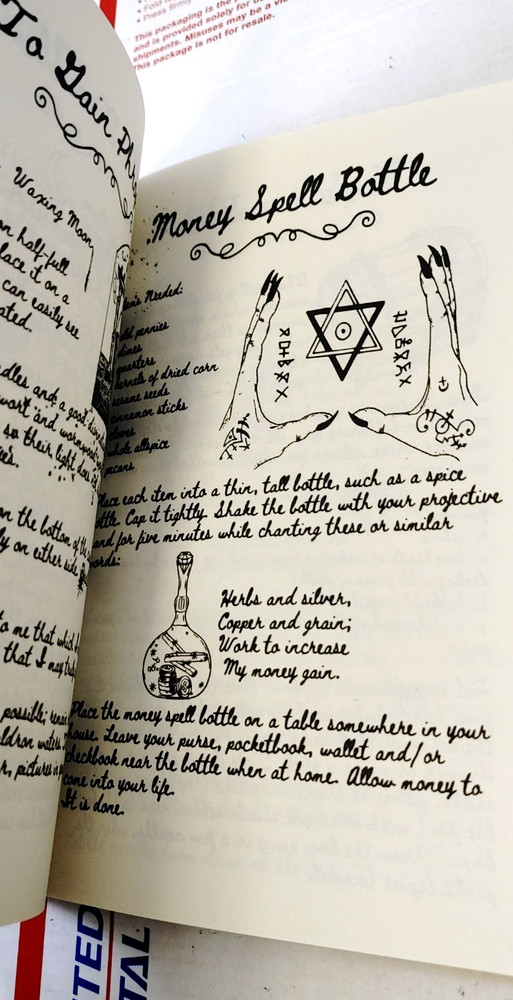 • Press firmly
This packaging is the
and is provided solely for
shipments. Misuses may be a
This package is not for resale.
To Gain
Waxing Moon
on half-full
place it on a
can easily see
and a good
so their light
on the bottom of the
on either side
to me that which
that I may
possible;
pictures
Money Spell Bottle
Needed:
old pennies
dimes
quarters
kernels of dried corn
sesame seeds
cinnamon sticks
cloves
whole allspice
pecans
Place each item into a thin, tall bottle, such as a spice
bottle. Cap it tightly. Shake the bottle with your projective
hand for five minutes while chanting these or similar
words:
Herbs and silver,
Copper and grain;
Work to increase
My money gain.
Place the money spell bottle on a table somewhere in your
house. Leave your purse, pocketbook, wallet and/or
checkbook near the bottle when at home. Allow money to
come into your life.
It is done.